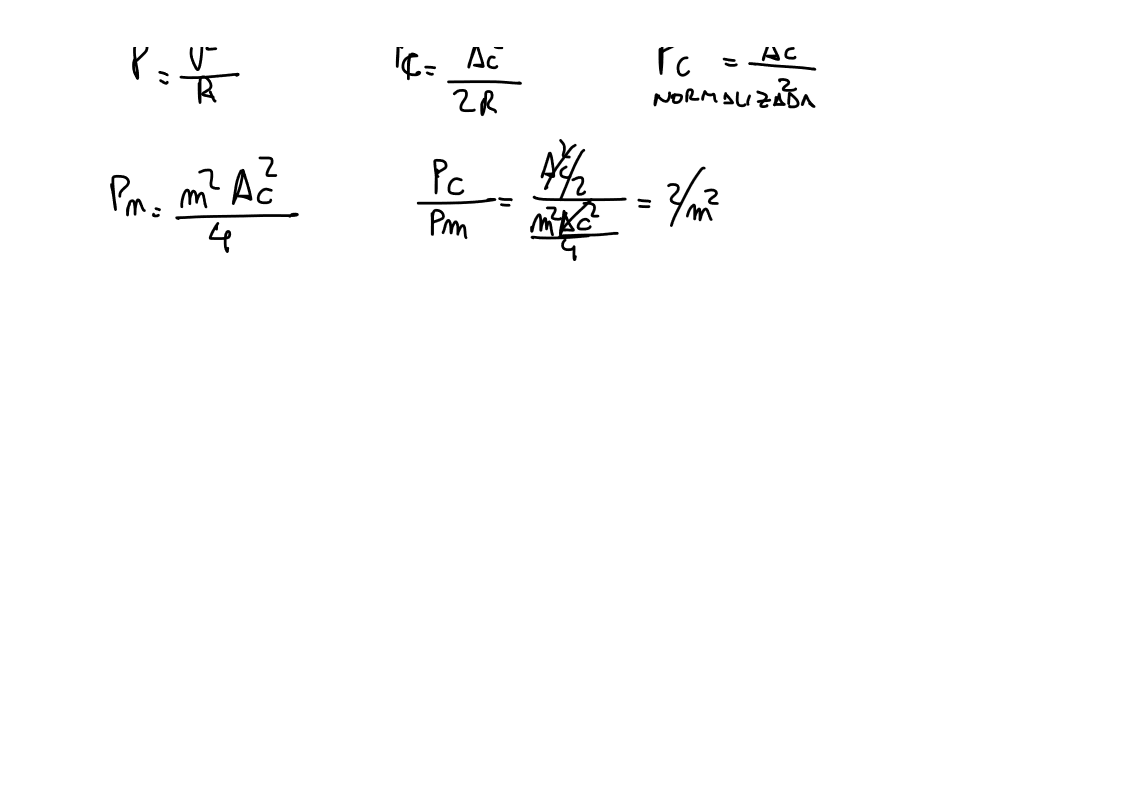 P = V²/R    Pc = Ac²/2R    Pc NORMALIZADA = Ac²/2
Pm = m² Ac²/4    Pc/Pm = (Ac²/2)/(m² Ac²/4) = 2/m²